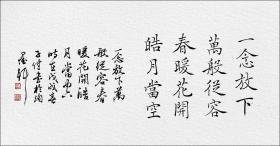 一念放下
萬般從容
春暖花開
皓月當空
一念放下萬
般從容春
暖花開皓
月當空
戊戌春
書於